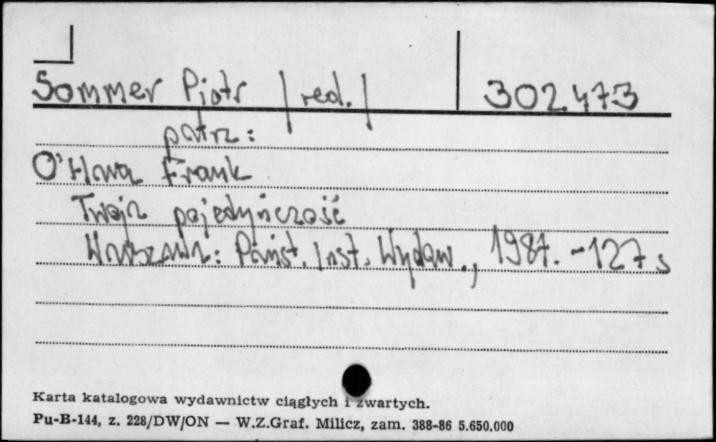 Sommer Piotr /red./ 302.473
patrz:
O'Hara Frank
Twoja pojedyńczość
Warszawa: Państ. Inst. Wydaw., 1987. - 127 s
Karta katalogowa wydawnictw ciągłych i zwartych.
Pu-B-144, z. 228/DW/ON — W.Z.Graf. Milicz, zam. 388-86 5.650.000